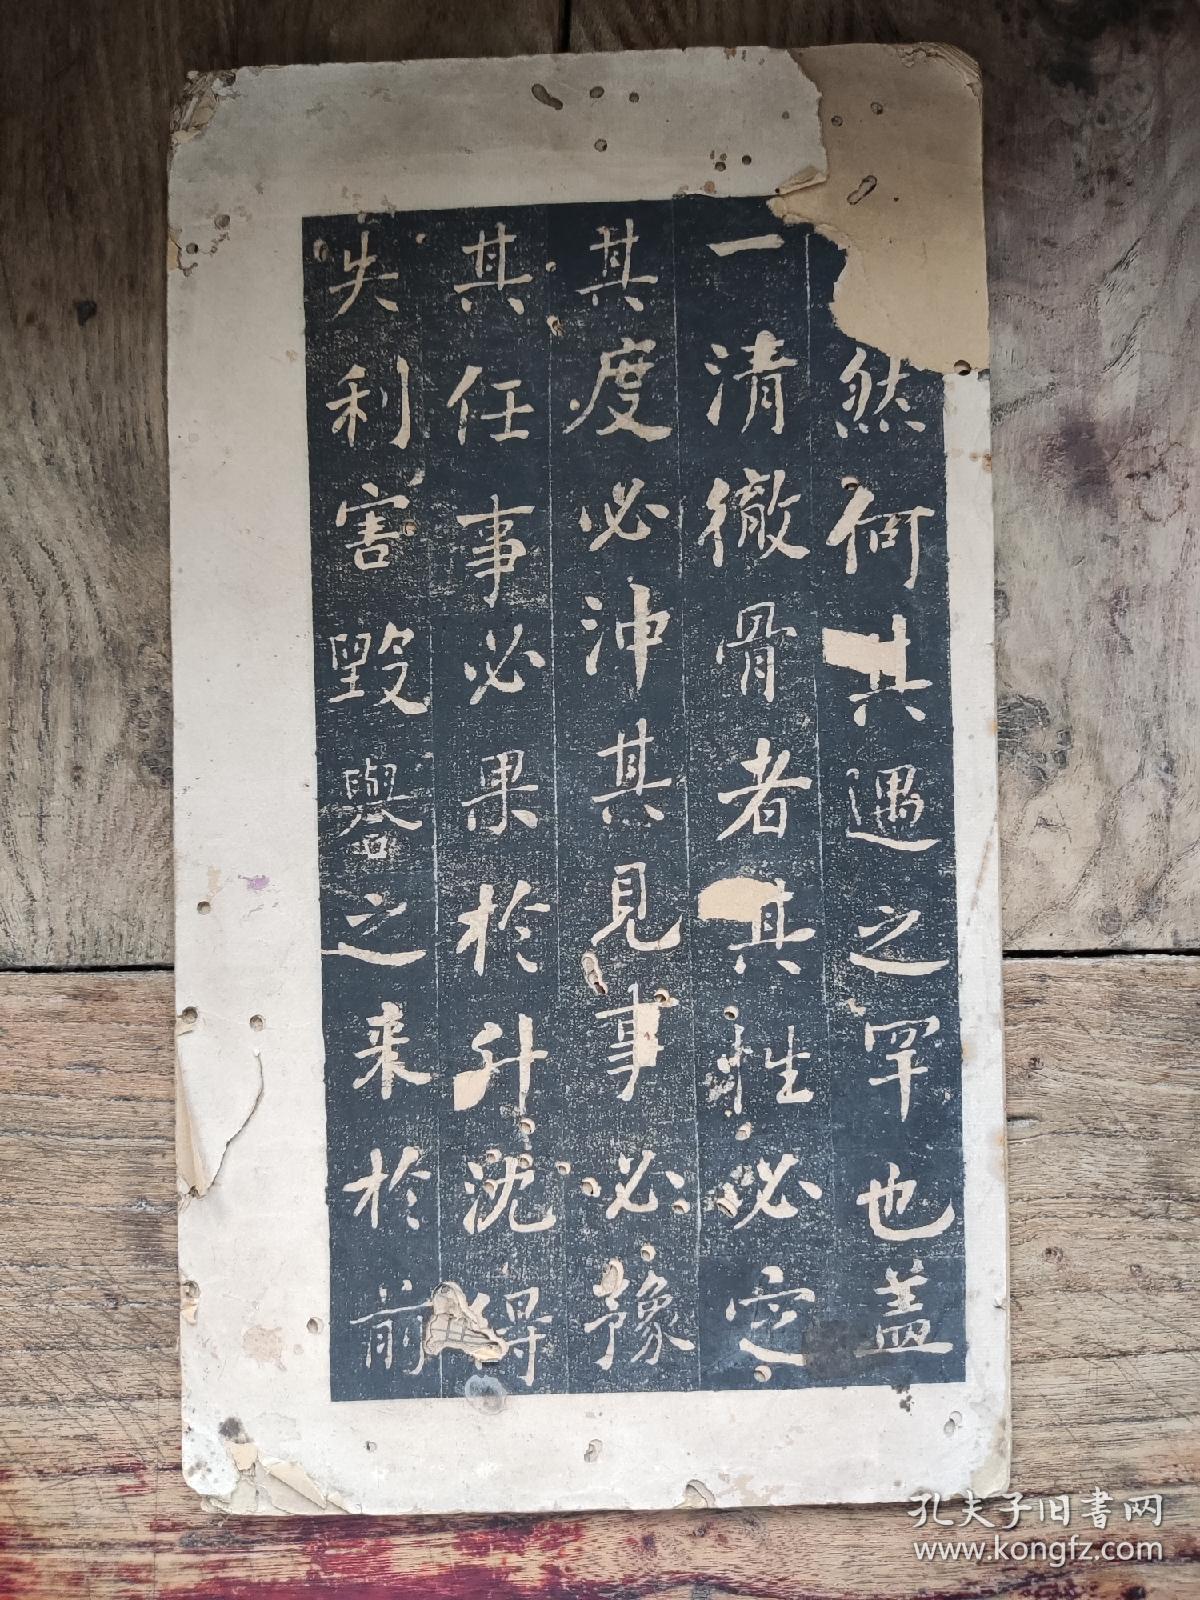 然何其遇之罕也盖
一清徹骨者其性必定
其度必沖其見事必豫
其任事必果於升沈得
失利害毀譽之来於前
孔夫子旧书网
www.kongfz.com